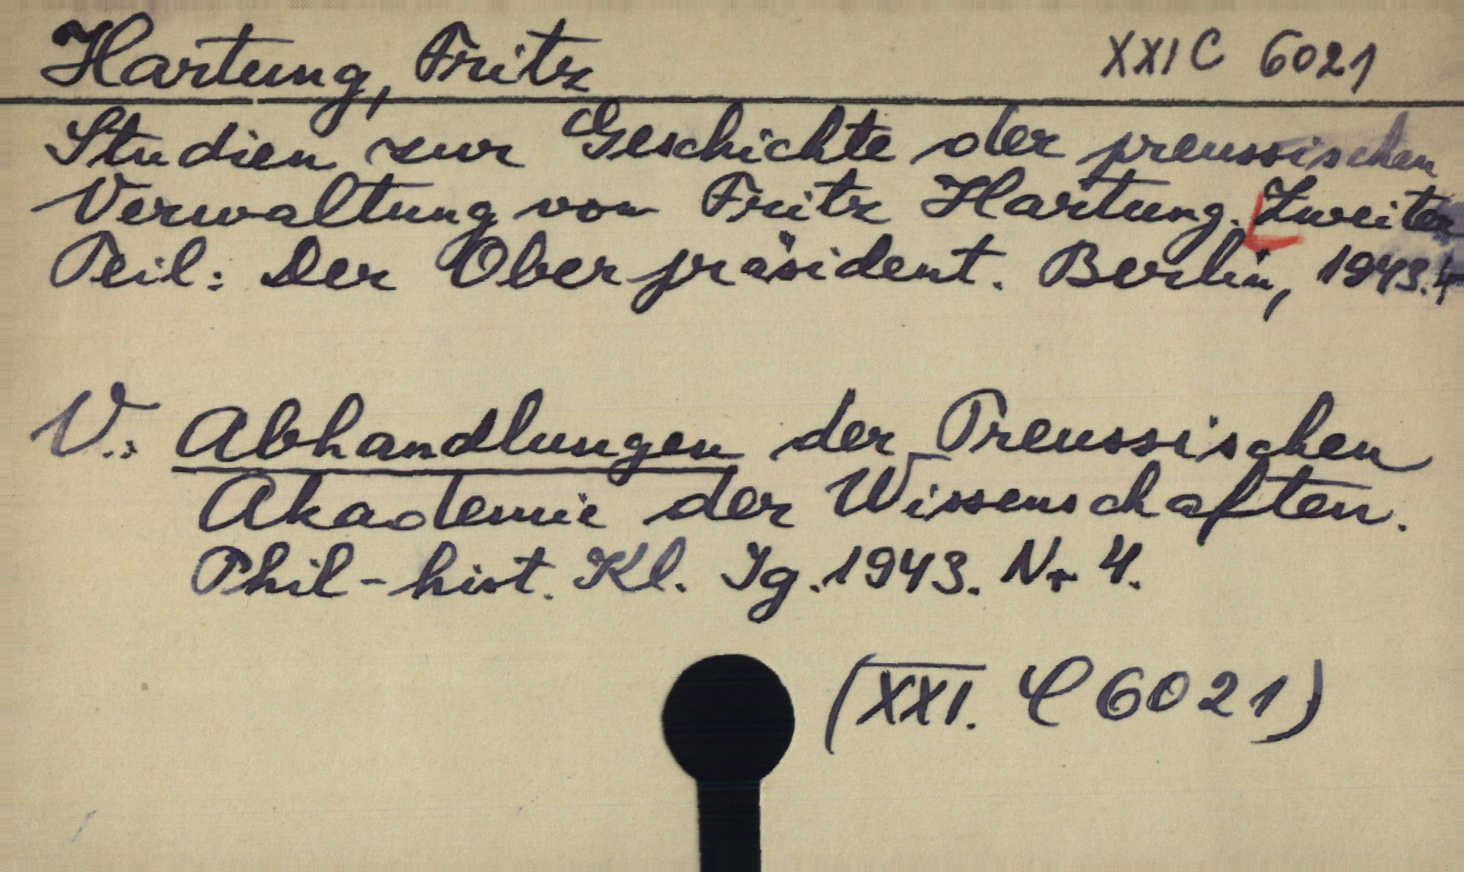 Hartung, Fritz XXI C 6021
Studien zur Geschichte der preussischen
Verwaltung von Fritz Hartung. Zweiter
Teil: Der Oberpräsident. Berlin, 1943. 4
V.: Abhandlungen der Preussischen
Akademie der Wissenschaften.
Phil-hist. Kl. Jg. 1943. Nr 4.
(XXI. C 6021)